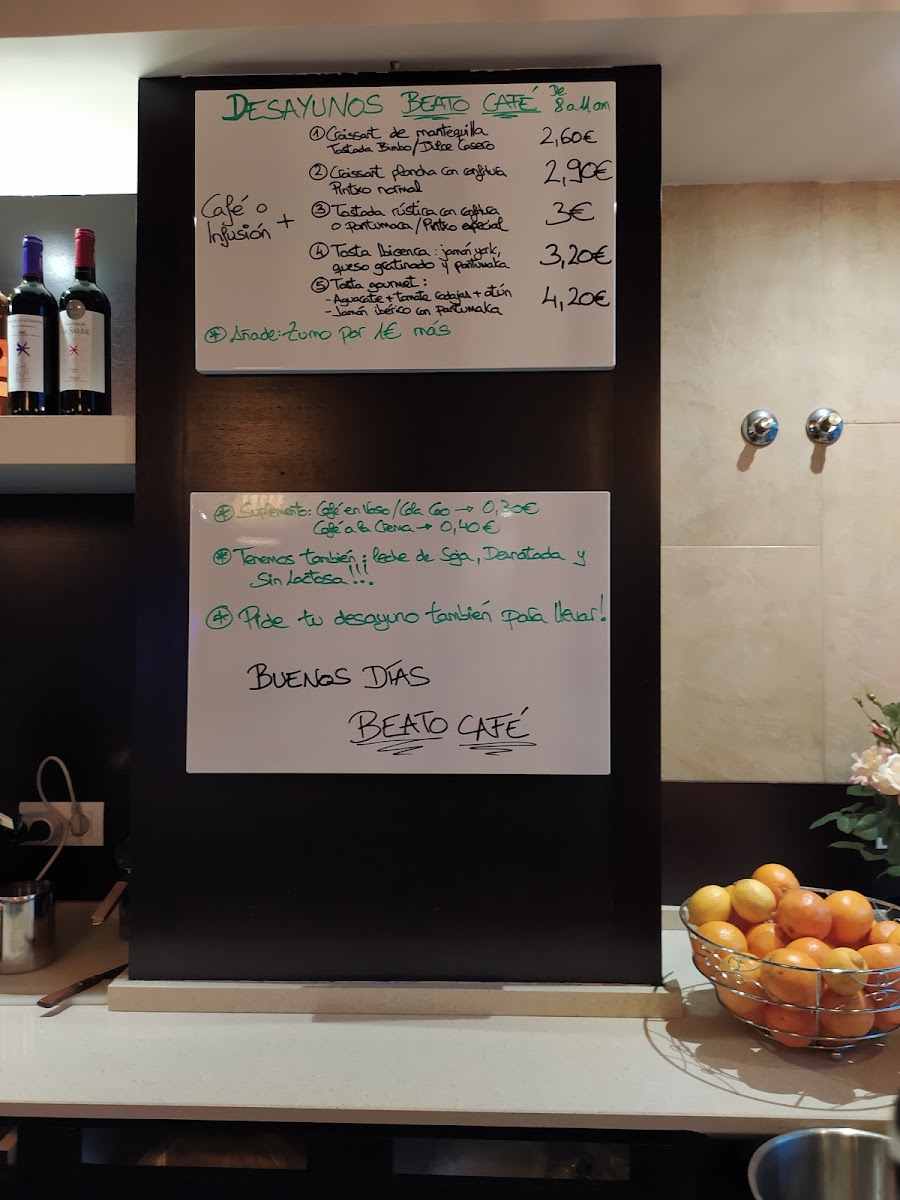 DESAYUNOS BEATO CAFÉ De 8 a 11 am
Café o Infusión +
① Croissart de mantequilla
Tostada Bimbo/Dulce Casero 2,60€
② Croissart plancha con confitura
Pintxo normal 2,90€
③ Tostada rústica con confitura
o pantumaca/Pintxo especial 3€
④ Tosta Ibicenca: jamón york,
queso gratinado y pantumaka 3,20€
⑤ Tosta gourmet:
-Aguacate+tomate rodajas+atún
-Jamón ibérico con pantumaka 4,20€
* Añade: Zumo por 1€ más
* Suplemento: Café en Vaso/Cola Cao → 0,30€
Café a la Crema → 0,40€
* Tenemos también: leche de Soja, Desnatada y
Sin Lactosa!!!
* Pide tu desayuno también para llevar!
BUENOS DÍAS
BEATO CAFÉ